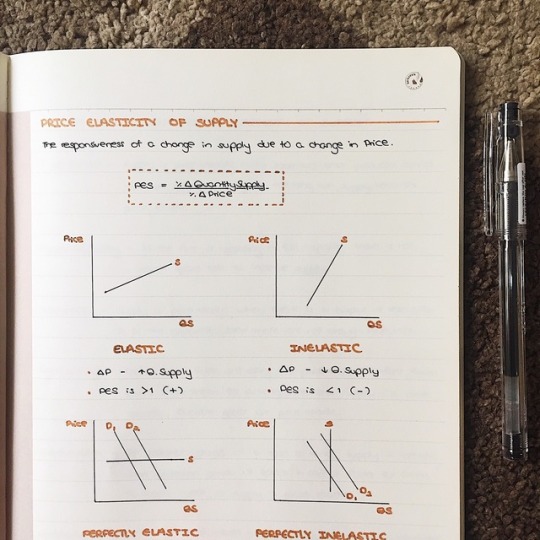 PRICE ELASTICITY OF SUPPLY
The responsiveness of a change in supply due to a change in Price.
PES = %Δ Quantity Supply
%Δ Price
Price
S
QS
Price
S
QS
ELASTIC
• ΔP - ↑Q.Supply
• PES is >1 (+)
INELASTIC
• ΔP - ↓Q.Supply
• PES is <1 (-)
Price
D₁ D₂
S
QS
Price
S
D₁ D₂
QS
PERFECTLY ELASTIC
PERFECTLY INELASTIC